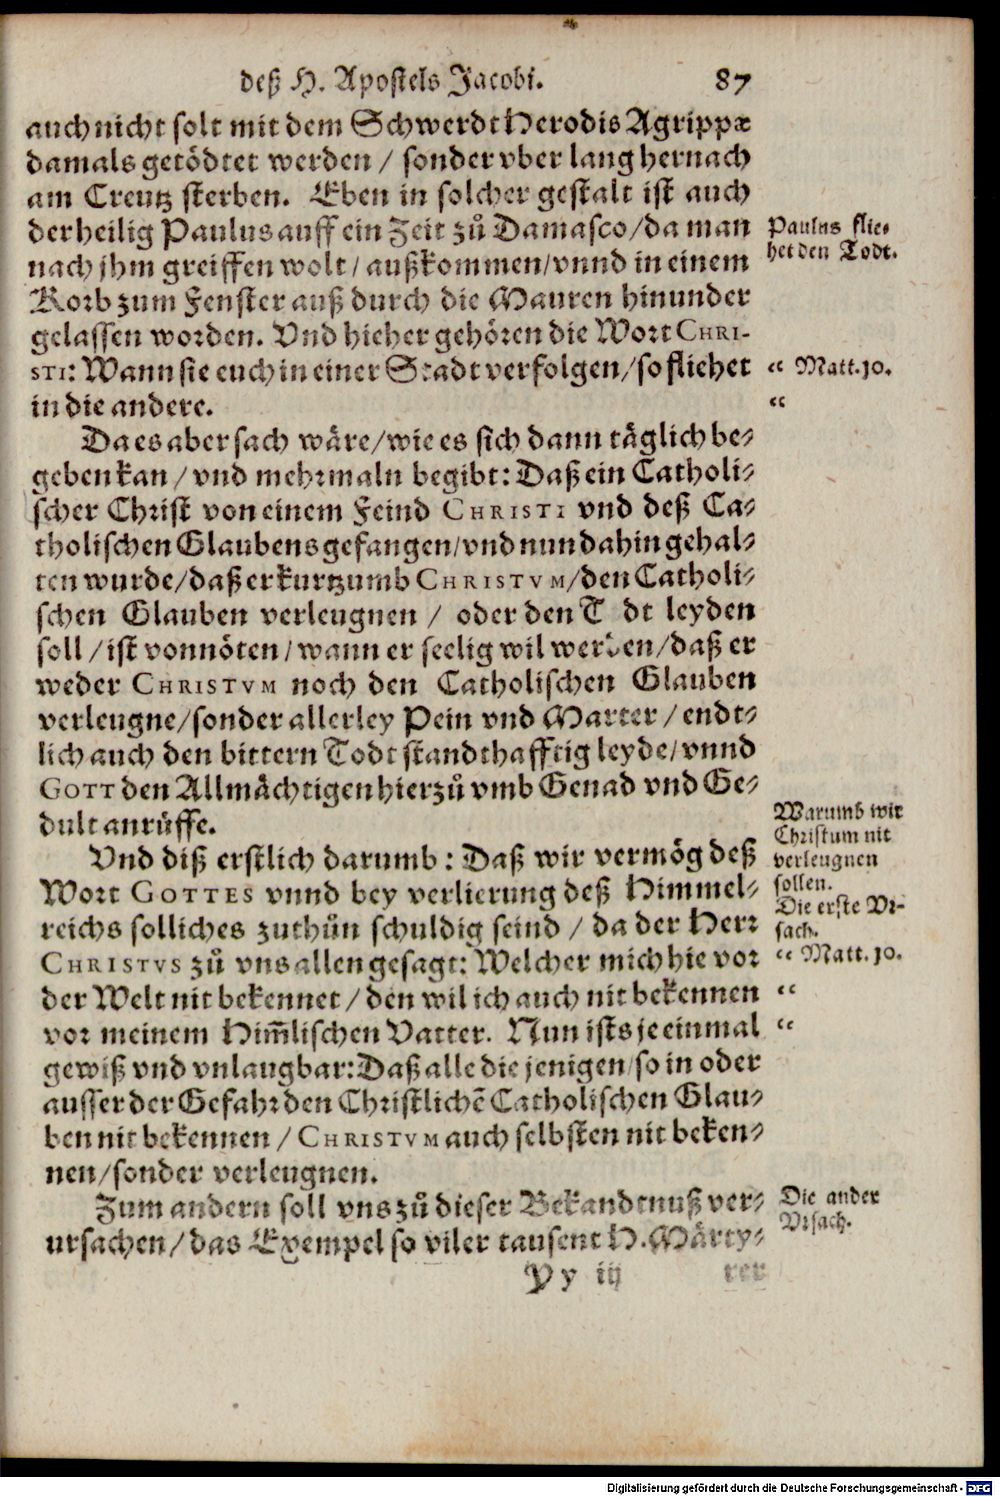 deß H. Apostels Jacobi. 87
auch nicht solt mit dem Schwerdt Herodis Agrippæ
damals getödtet werden / sonder vber lang hernach
am Creutz sterben. Eben in solcher gestalt ist auch
der heilig Paulus auff ein Zeit zů Damasco/da man
nach jhm greiffen wolt/außkommen/vnnd in einem
Korb zum Fenster auß durch die Mauren hinunder
gelassen worden. Vnd hieher gehören die Wort CHRI-
STI: Wann sie euch in einer Stadt verfolgen/so fliehet
in die andere.
Paulus flie-
het den Todt.
“ Matt.10.
“
Da es aber sach wäre/wie es sich dann täglich be-
geben kan/vnd mehrmaln begibt: Daß ein Catholi-
scher Christ von einem Feind CHRISTI vnd deß Ca-
tholischen Glaubens gefangen/vnd nun dahin gehal-
ten wurde/daß er kurtzumb CHRISTVM/den Catholi-
schen Glauben verleugnen / oder den T dt leyden
soll/ist vonnöten/wann er seelig wil werden/daß er
weder CHRISTVM noch den Catholischen Glauben
verleugne/sonder allerley Pein vnd Marter/endt-
lich auch den bittern Todt standthafftig leyde/vnnd
GOTT den Allmächtigen hierzů vmb Genad vnd Ge-
dult anrůffe.
Vnd diß erstlich darumb: Daß wir vermög deß
Wort GOTTES vnnd bey verlierung deß Himmel-
reichs solliches zuthůn schuldig seind / da der Herr
CHRISTVS zů vns allen gesagt: Welcher mich hie vor
der Welt nit bekennet/den wil ich auch nit bekennen
vor meinem Him̃lischen Vatter. Nun ists je einmal
gewiß vnd vnlaugbar: Daß alle die jenigen/so in oder
ausser der Gefahr den Christlichẽ Catholischen Glau-
ben nit bekennen/CHRISTVM auch selbsten nit beken-
nen/sonder verleugnen.
Warumb wir
Christum nit
verleugnen
sollen.
Die erste Vr-
sach.
“ Matt.10.
“
“
Zum andern soll vns zů dieser Bekandtnuß ver-
ursachen/das Exempel so viler tausent H. Märty-
Die ander
Vrsach.
Yy iij rer
Digitalisierung gefördert durch die Deutsche Forschungsgemeinschaft - DFG